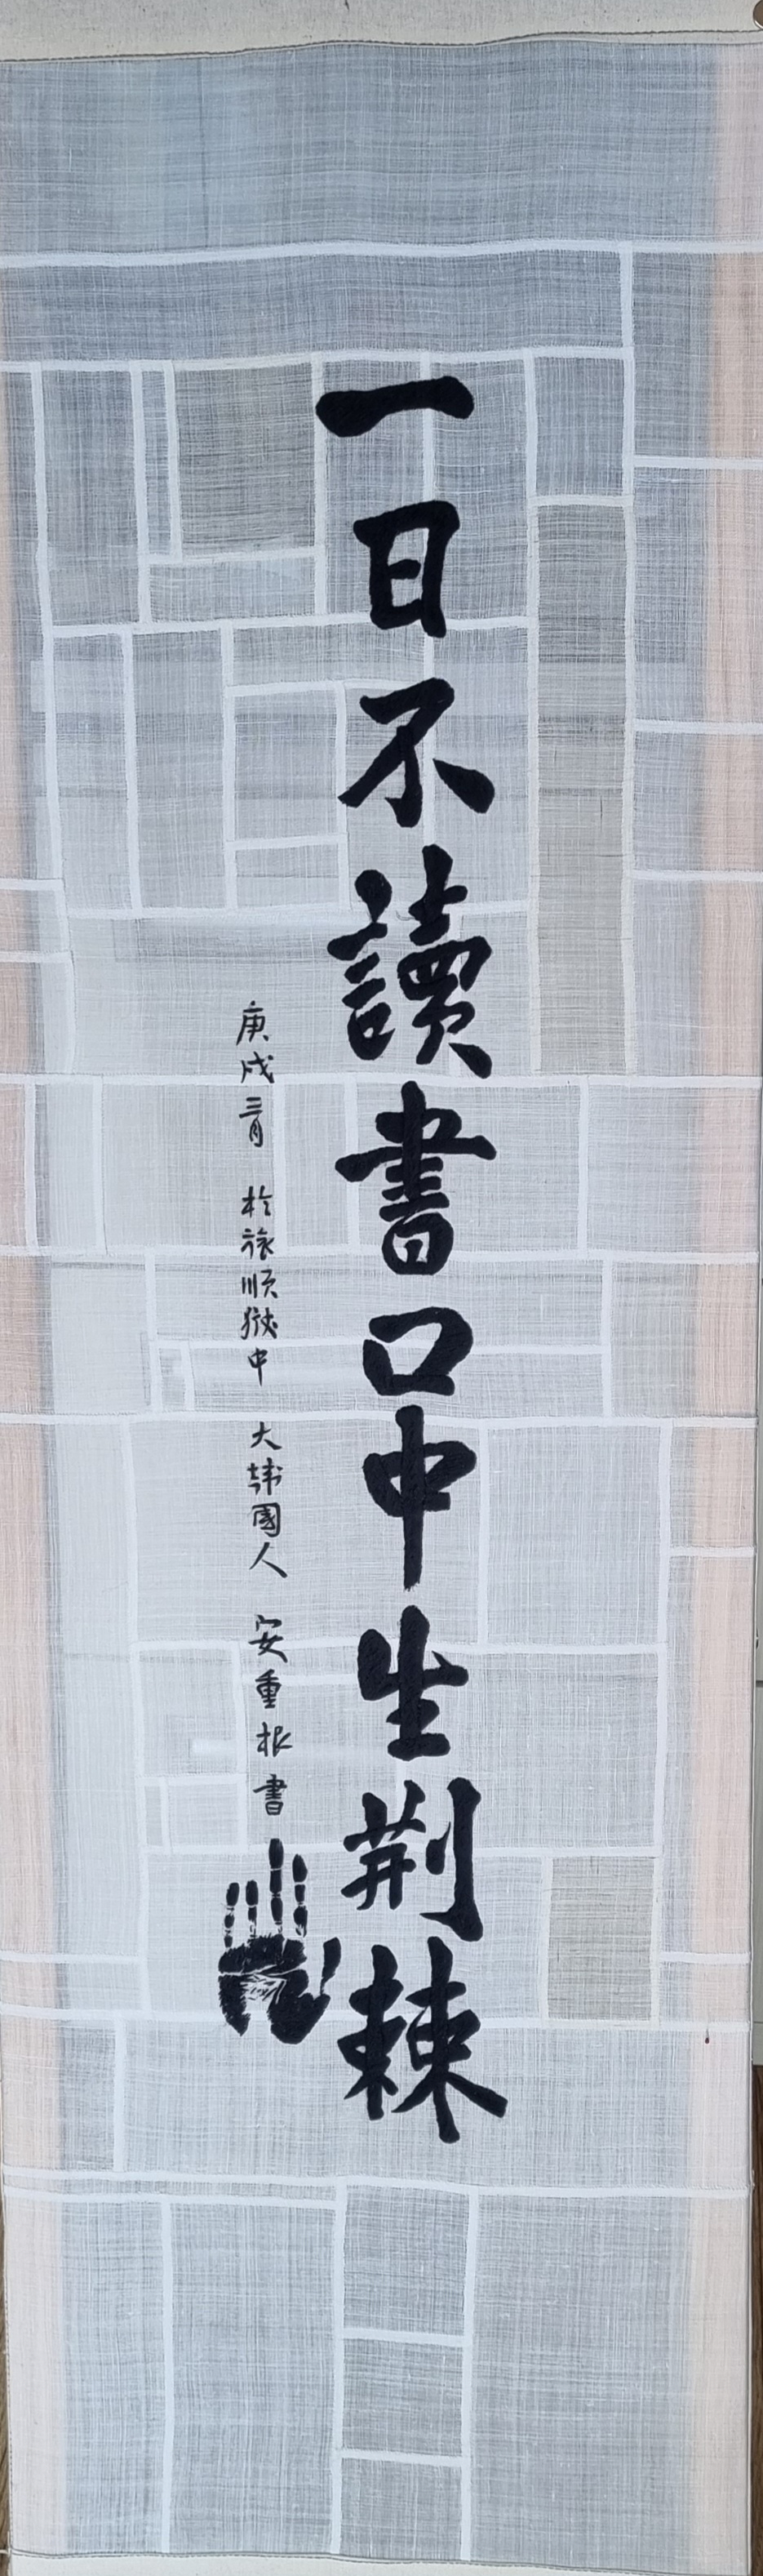 一日不讀書口中生荆棘
庚戌三月 於旅順獄中 大韓國人 安重根書